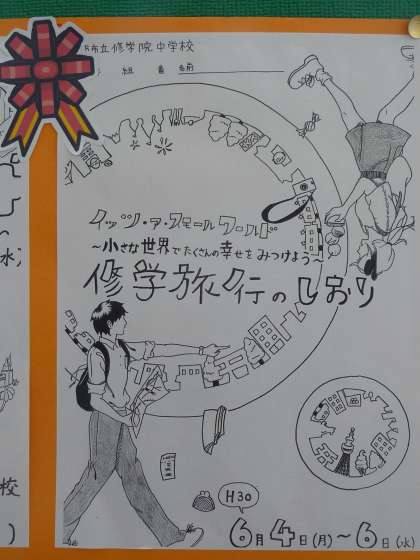 市立修学院中学校
組 番 名前
イッツ・ア・スモールワールド
～小さな世界でたくさんの幸せをみつけよう～
修学旅行のしおり
H30
6月4日(月)～6日(水)
水)
校
)